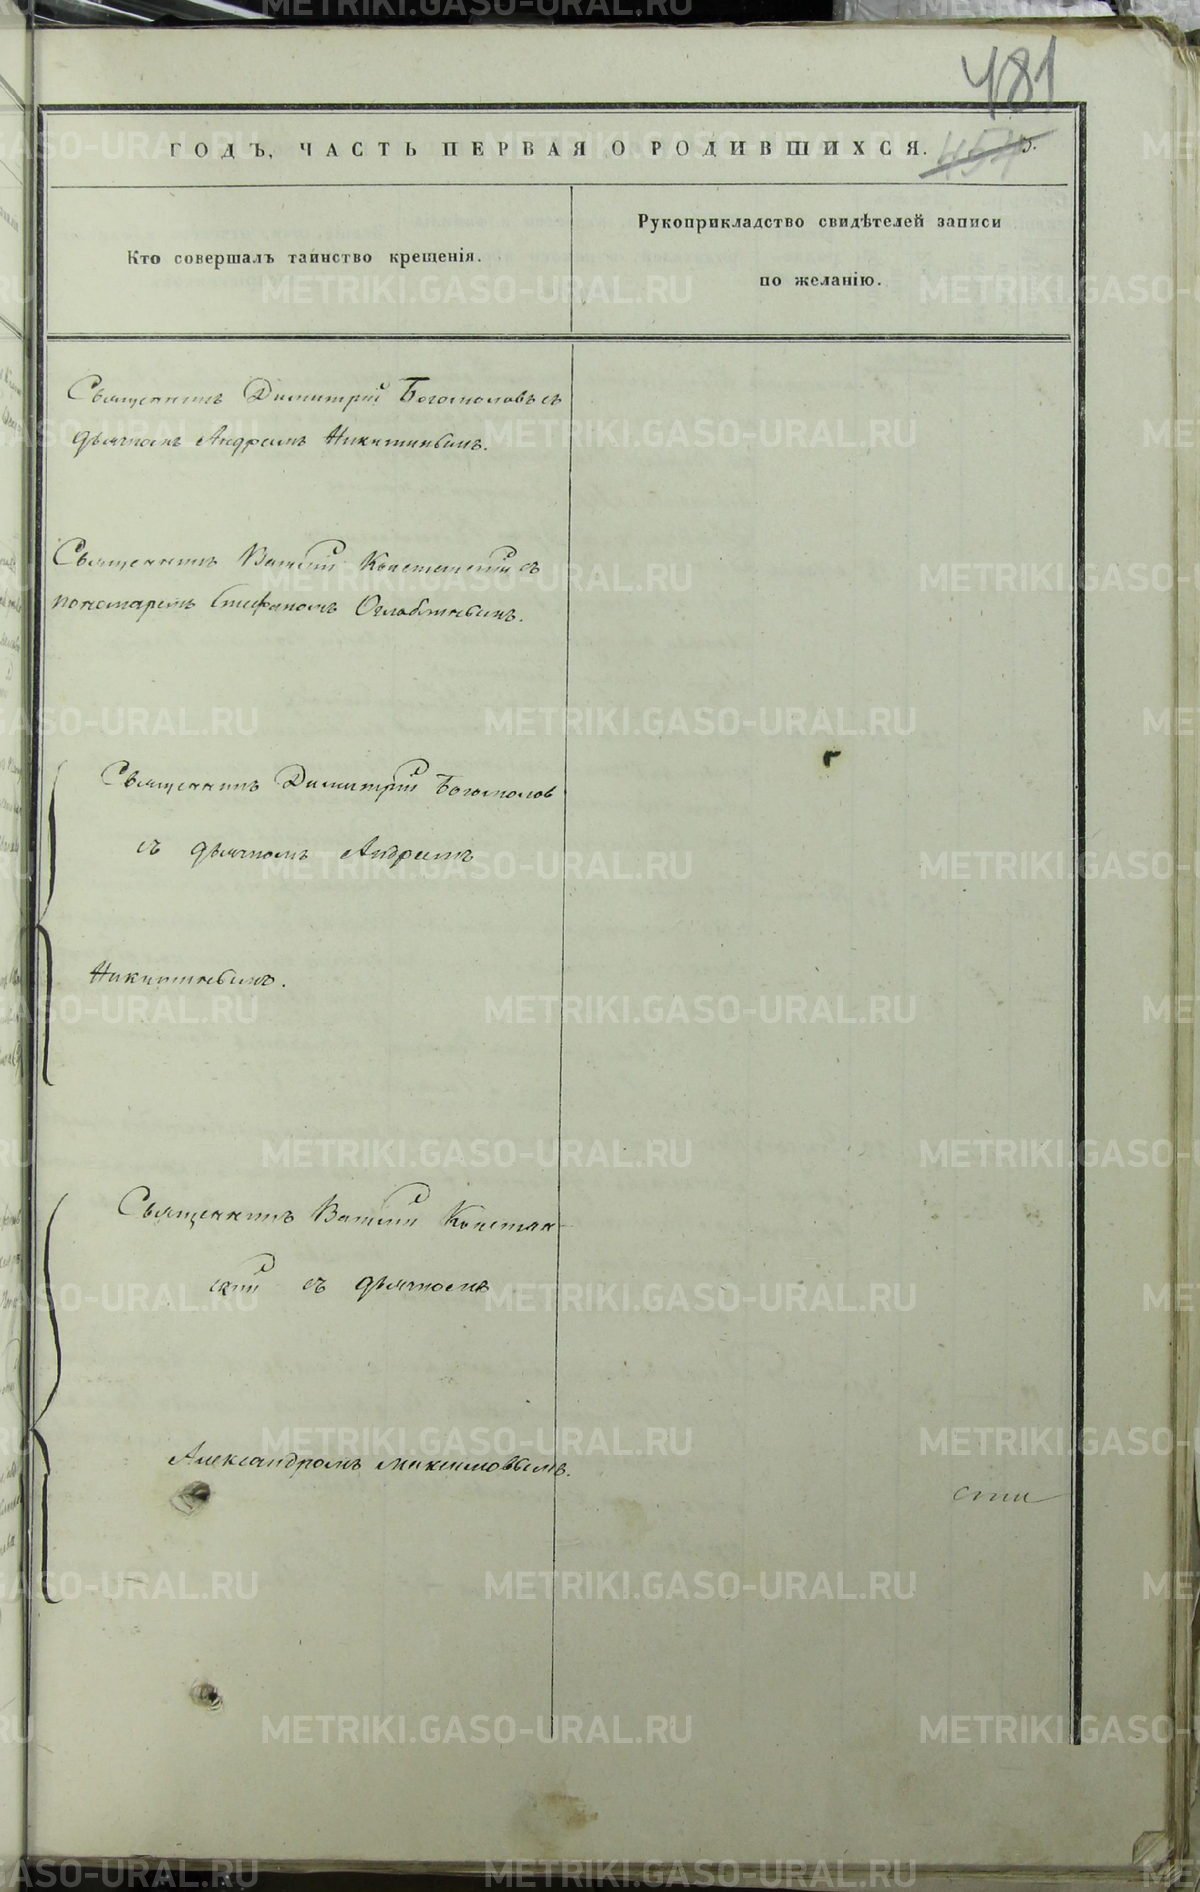 481
ГОДЪ, ЧАСТЬ ПЕРВАЯ О РОДИВШИХСЯ. 454 5.
Кто совершалъ таинство крещенія.
Рукоприкладство свидѣтелей записи
по желанію.
Священникъ Димитрій Богомоловъ съ
дьячкомъ Андреемъ Никитинымъ.
Священникъ Василій Констанскій съ
пономаремъ Стефаномъ Оглоблинымъ.
Священникъ Димитрій Богомолов
съ дьячкомъ Андреемъ
Никитинымъ.
Священникъ Василій Констан-
скій съ дьячкомъ
Александромъ Максимовымъ.
METRIKI.GASO-URAL.RU